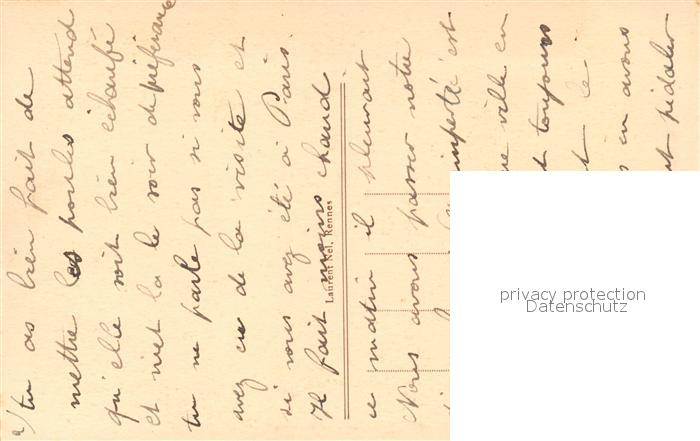 2) tu as bien fait de
mettre les poules attend
qu'elle soit bien échaufé
et met la le soir de préférence
tu ne parle pas si vous
avez eu de la visite et
si vous avez été à Paris.
Il fait moins chaud
ce matin il pleuvait
Nous avons passer notre
imperté c'est
ville en
toujours
en avons
pédaler
Laurent Nel, Rennes
privacy protection
Datenschutz